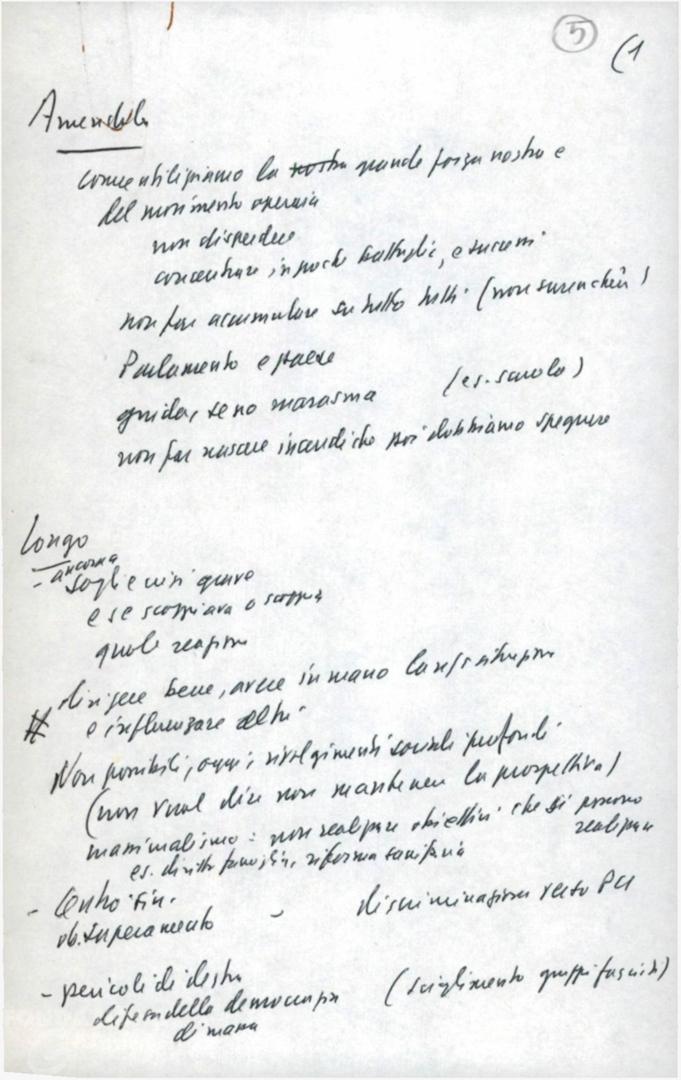 5
(1
Amendola
come utilizziamo la nostra grande forza nostra e
del movimento operaio
non disperdere
concentrare in poche battaglie, e successi
non far accumulare su tutto tutti (non
Parlamento e paese
guida, se no marasma (es. scuola)
non far nascere incendi che noi dobbiamo spegnere
Longo
- ancora
crisi grave
e se scoppiava o scoppia
quale reazione
# dirigere bene, avere in mano la ns situazione
e influenzare altri
Non possibili, oggi, rivolgimenti sociali profondi
(non vuol dire non mantenere la prospettiva)
massimalismo: non realizzare obiettivi che si possono
realizzare
es. diritto famiglia, riforma sanitaria
- Centro sin.
ob. superamento - discriminazione verso PCI
- pericoli di destra
difesa della democrazia (scioglimento gruppi fascisti)
di massa